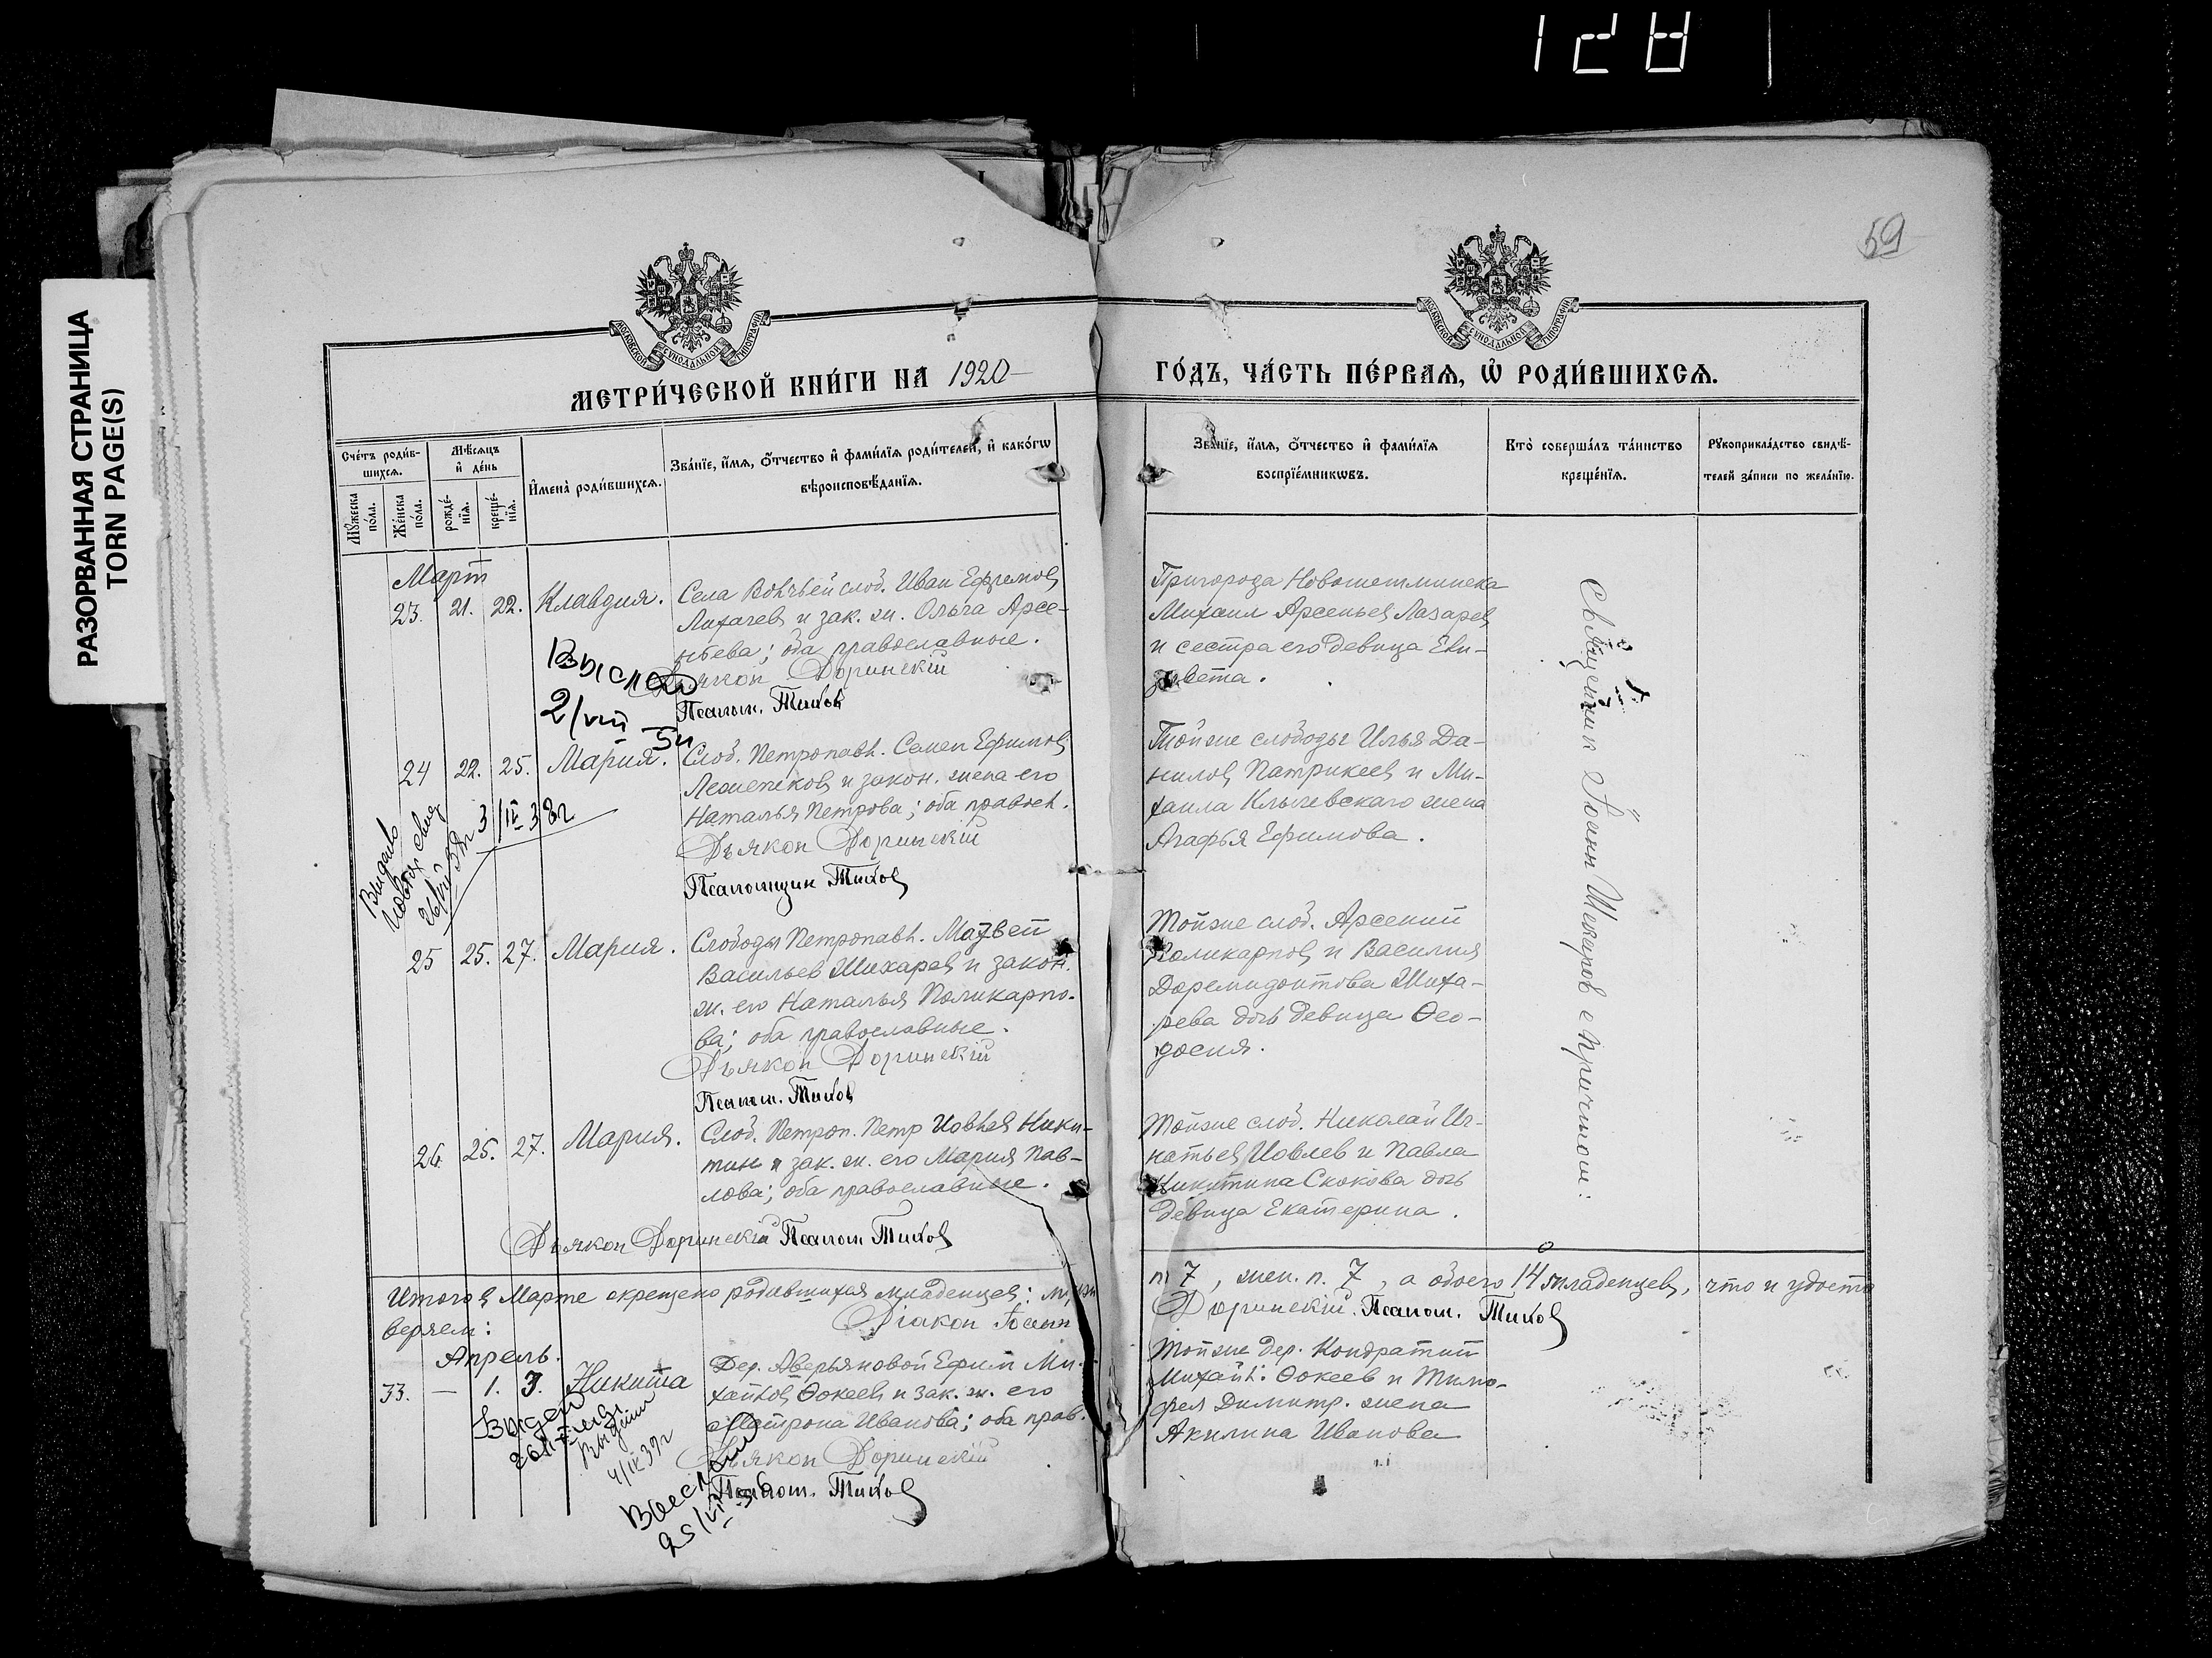 128
РАЗОРВАННАЯ СТРАНИЦА
TORN PAGE(S)
59
МОСКОВСКОЙ СѴНОДАЛЬНОЙ ТИПОГРАФІИ
МОСКОВСКОЙ СѴНОДАЛЬНОЙ ТИПОГРАФІИ
МЕТРИ́ЧЕСКОЙ КНИ́ГИ НА 1920
ГО́ДЪ, ЧА́СТЬ ПЕ́РВАЯ, Ѡ҆ РОДИ́ВШИХСЯ.
Сче́тъ роди́в-
шихся.
Мѣ́сяцъ
и҆ де́нь
Мꙋ́жеска
по́ла.
Же́нска
по́ла.
рожде́-
нїя.
креще́-
нїя.
И҆мена̀ роди́вшихся.
Зва́нїе, и҆́мя, ѻ҆́тчество и҆ фами́лїя роди́телей, и҆ како́гѡ
вѣроисповѣ́данїя.
Зва́нїе, и҆́мя, ѻ҆́тчество и҆ фами́лїя
воспрїе́мникѡвъ.
Кто̀ соверша́лъ та́инство
креще́нїя.
Рꙋкоприкла́дство свидѣ́-
телей за́писи по жела́нїю.
Март
23. 21. 22. Клавдия. Села Волчьей слоб. Иван Ефремов
Лихачев и зак. ж. Ольга Арсе-
нтева; оба православные.
Дьякон Доринскій
Псалом. Тихов
Выслан
2/VIII 54
Пригорода Новошешминска
Михаил Арсеньев Лазарев
и сестра его девица Ели-
завета.
24 22. 25. Мария. Слоб. Петропавл. Семен Ефимов
Лежепеков и закон. жена его
Наталья Петрова; оба правосл.
Дьякон Доринскій
Псаломщик Тихов
3/IV 38г
Выдано
Тойже слободы Илья Да-
нилов Патрикеев и Ми-
хаила Клычевскаго жена
Агафья Ефимова.
25 25. 27. Мария. Слободы Петропавл. Матвей
Васильев Шихарев и закон.
ж. его Наталья Поликарпо-
ва; оба православные.
Дьякон Доринскій
Псалом. Тихов
Тойже слоб. Арсений
Поликарпов и Василия
Доремидонтова Шиха-
рева дочь девица Ѳео-
досия.
26. 25. 27. Мария. Слоб. Петроп. Петр Иовлев Ники-
тин и зак. ж. его Мария Пав-
лова; оба православные.
Дьякон Доринскій Псалом Тихов
Тойже слоб. Николай Иг-
натьев Иовлев и Павла
Никитина Скокова дочь
девица Екатерина.
Священник Іоанн Шекаров с причтом:
Итого в Марте окрещено родившихся младенцев: муж
п 7, жен. п. 7, а обоего 14 младенцев, что и удосто
веряем:
Діакон Іоанн
Доринскій. Псалом. Тихов
Апрель.
33. — 1. 3. Никита Дер. Аверьяновой Ефим Ми-
хайлов Ѳокеев и зак. ж. его
Матрона Иванова; оба прав.
Дьякон Доринскій
Псалом. Тихов
Выдан
4/IX 39г
Выслан
25/VI
Тойже дер. Кондратий
Михайл. Ѳокеев и Тимо-
фея Димитр. жена
Акилина Иванова